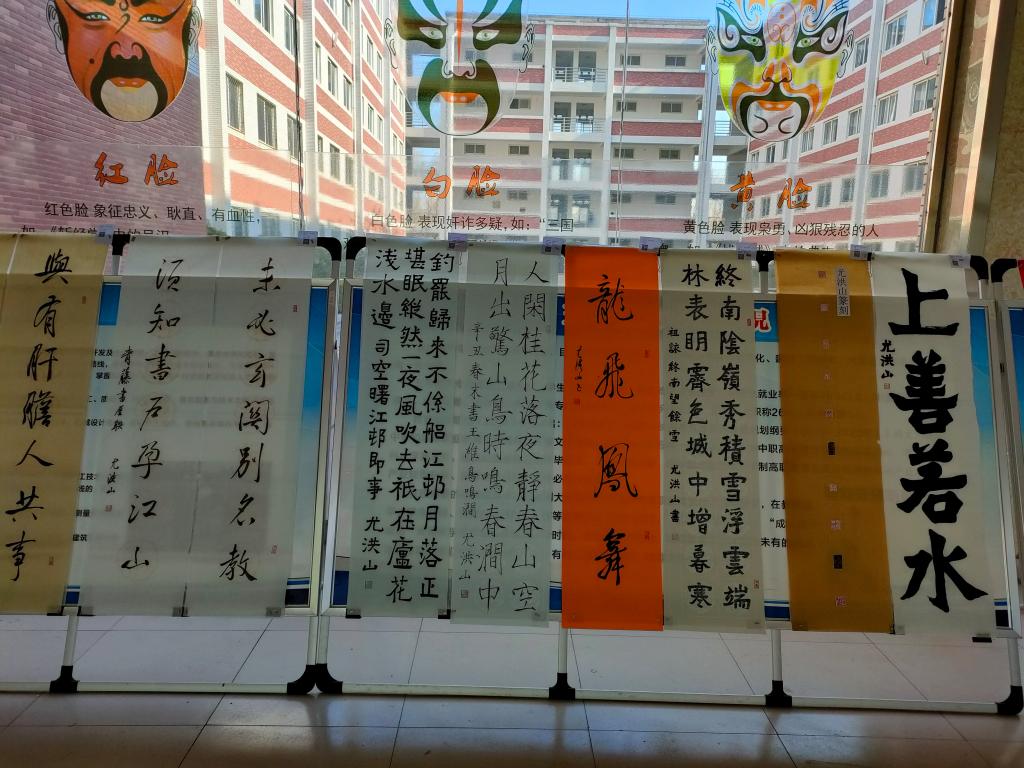 红脸
红色脸 象征忠义、耿直、有血性,
白脸
白色脸 表现奸诈多疑,如:“三国
黄脸
黄色脸 表现枭勇、凶狠残忍的人
與有肝膽人共事
未必玄關別名教
須知書戶孕江山
青藤書屋聯 尤洪山
釣罷歸來不係船江邨月落正
堪眠縱然一夜風吹去祇在廬花
淺水邊 司空曙江邨即事 尤洪山
人閑桂花落夜靜春山空
月出驚山鳥時鳴春澗中
辛丑春末書王維鳥鳴澗 尤洪山
龍飛鳳舞
終南陰嶺秀積雪浮雲端
林表明霽色城中增暮寒
祖詠終南望餘雪 尤洪山書
尤洪山篆刻
上善若水
尤洪山